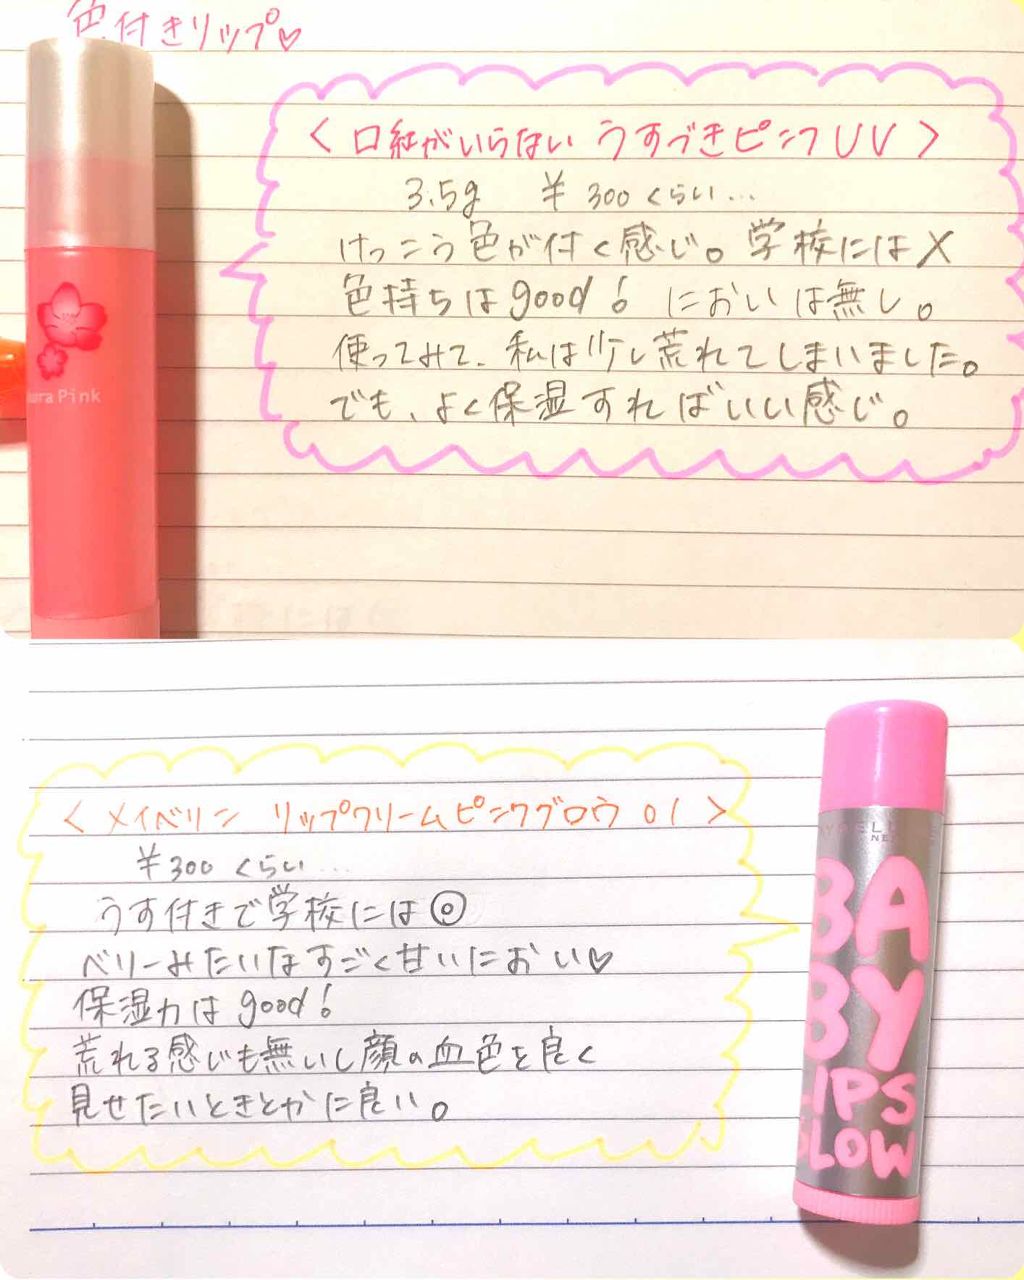 色付きリップ♡
＜口紅がいらない うすづきピンクUV＞
3.5g ￥300くらい…
けっこう色が付く感じ。学校には×
色持ちはgood! においは無し。
使ってみて、私は少し荒れてしまいました。
でも、よく保湿すればいい感じ。
ura Pink
＜メイベリン リップクリームピンクグロウ 01＞
￥300くらい…
うす付きで学校には◎
ベリーみたいなすごく甘いにおい♡
保湿力はgood!
荒れる感じも無いし顔の血色を良く
見せたいときとかに良い。
BA
BY
LIPS
GLOW